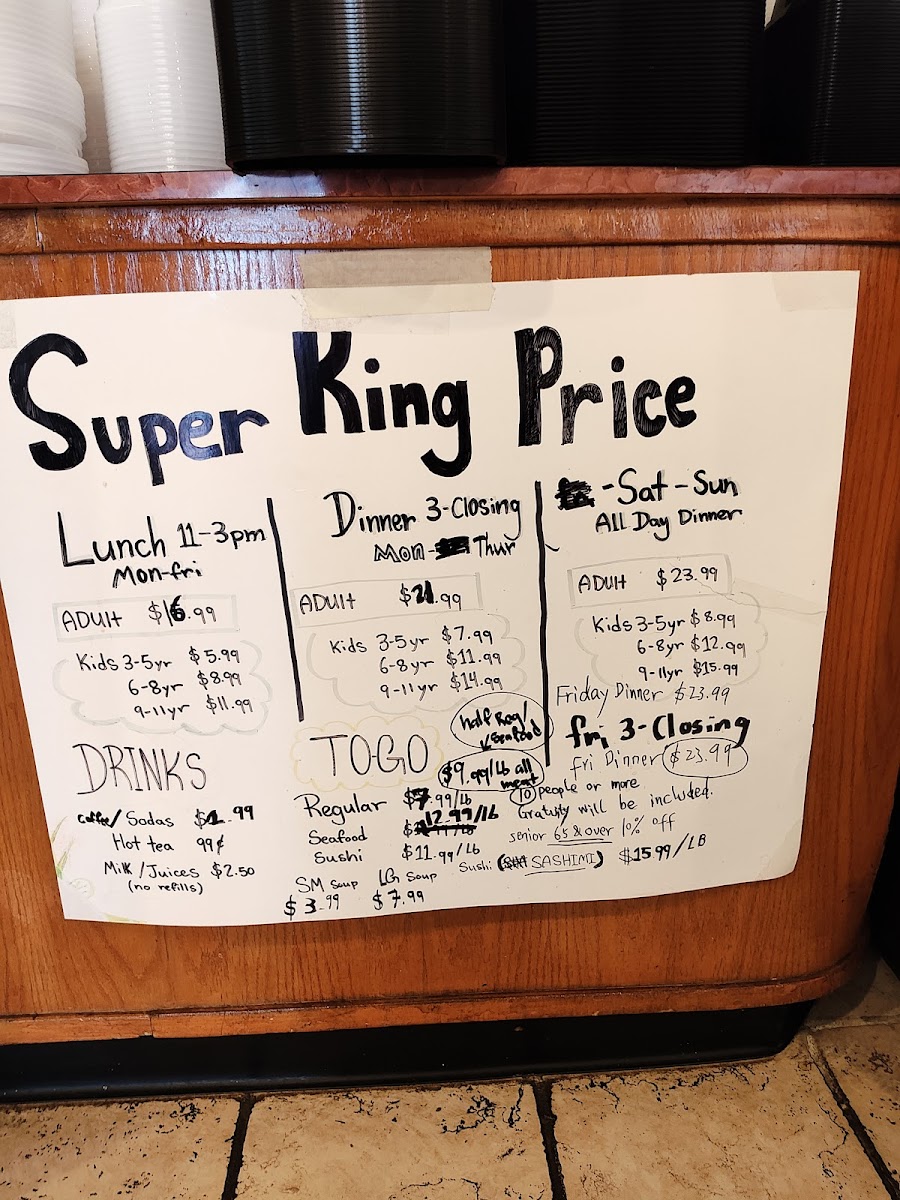 Super King Price
Lunch 11-3pm
Mon-fri
ADULT $16.99
Kids 3-5yr $5.99
6-8yr $8.99
9-11yr $11.99
DRINKS
coffee/Sodas $1.99
Hot tea 99¢
Milk/Juices $2.50
(no refills)
Dinner 3-Closing
Mon- Thur
ADULT $21.99
Kids 3-5yr $7.99
6-8yr $11.99
9-11yr $14.99
TO-GO
half Reg/
Seafood
$9.99/Lb all
meat
Regular $7.99/Lb
Seafood $12.99/Lb
Sushi $11.99/Lb
SM soup LG Soup
$3.99 $7.99
-Sat-Sun
All Day Dinner
ADULT $23.99
Kids 3-5yr $8.99
6-8yr $12.99
9-11yr $15.99
Friday Dinner $23.99
fri 3-Closing
fri Dinner $23.99
10 people or more
Gratuity will be included.
senior 65 & over 10% off
Sushi (SASHIMI) $15.99/LB